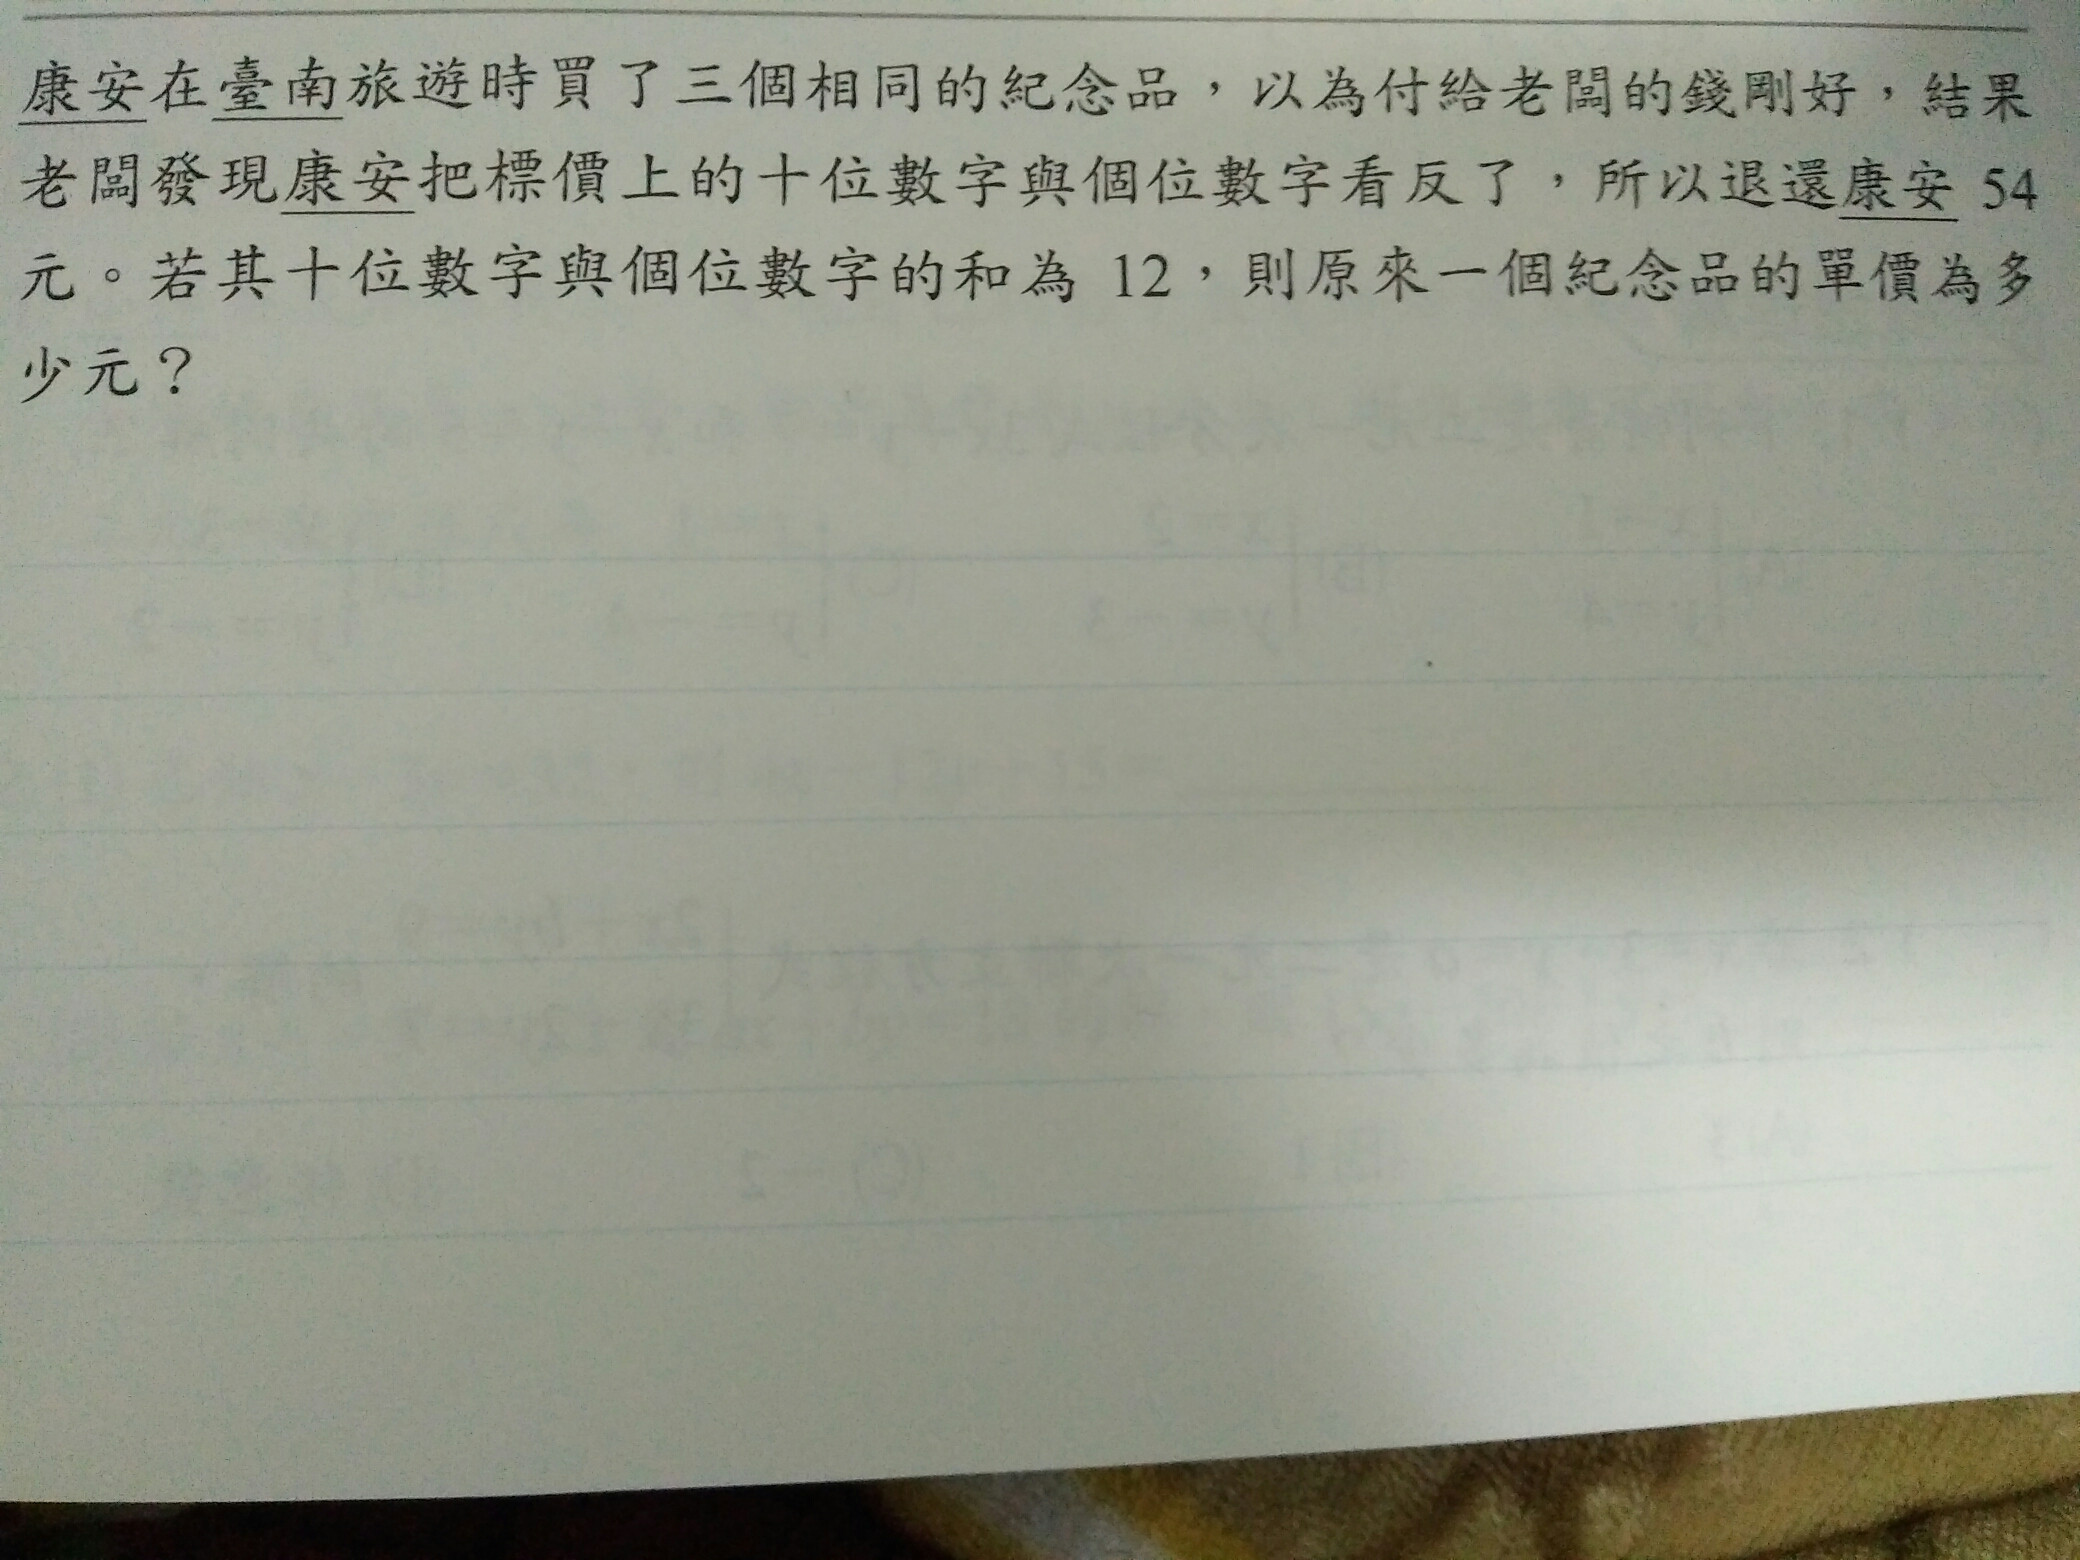 康安在臺南旅遊時買了三個相同的紀念品，以為付給老闆的錢剛好，結果
老闆發現康安把標價上的十位數字與個位數字看反了，所以退還康安 54
元。若其十位數字與個位數字的和為 12，則原來一個紀念品的單價為多
少元？